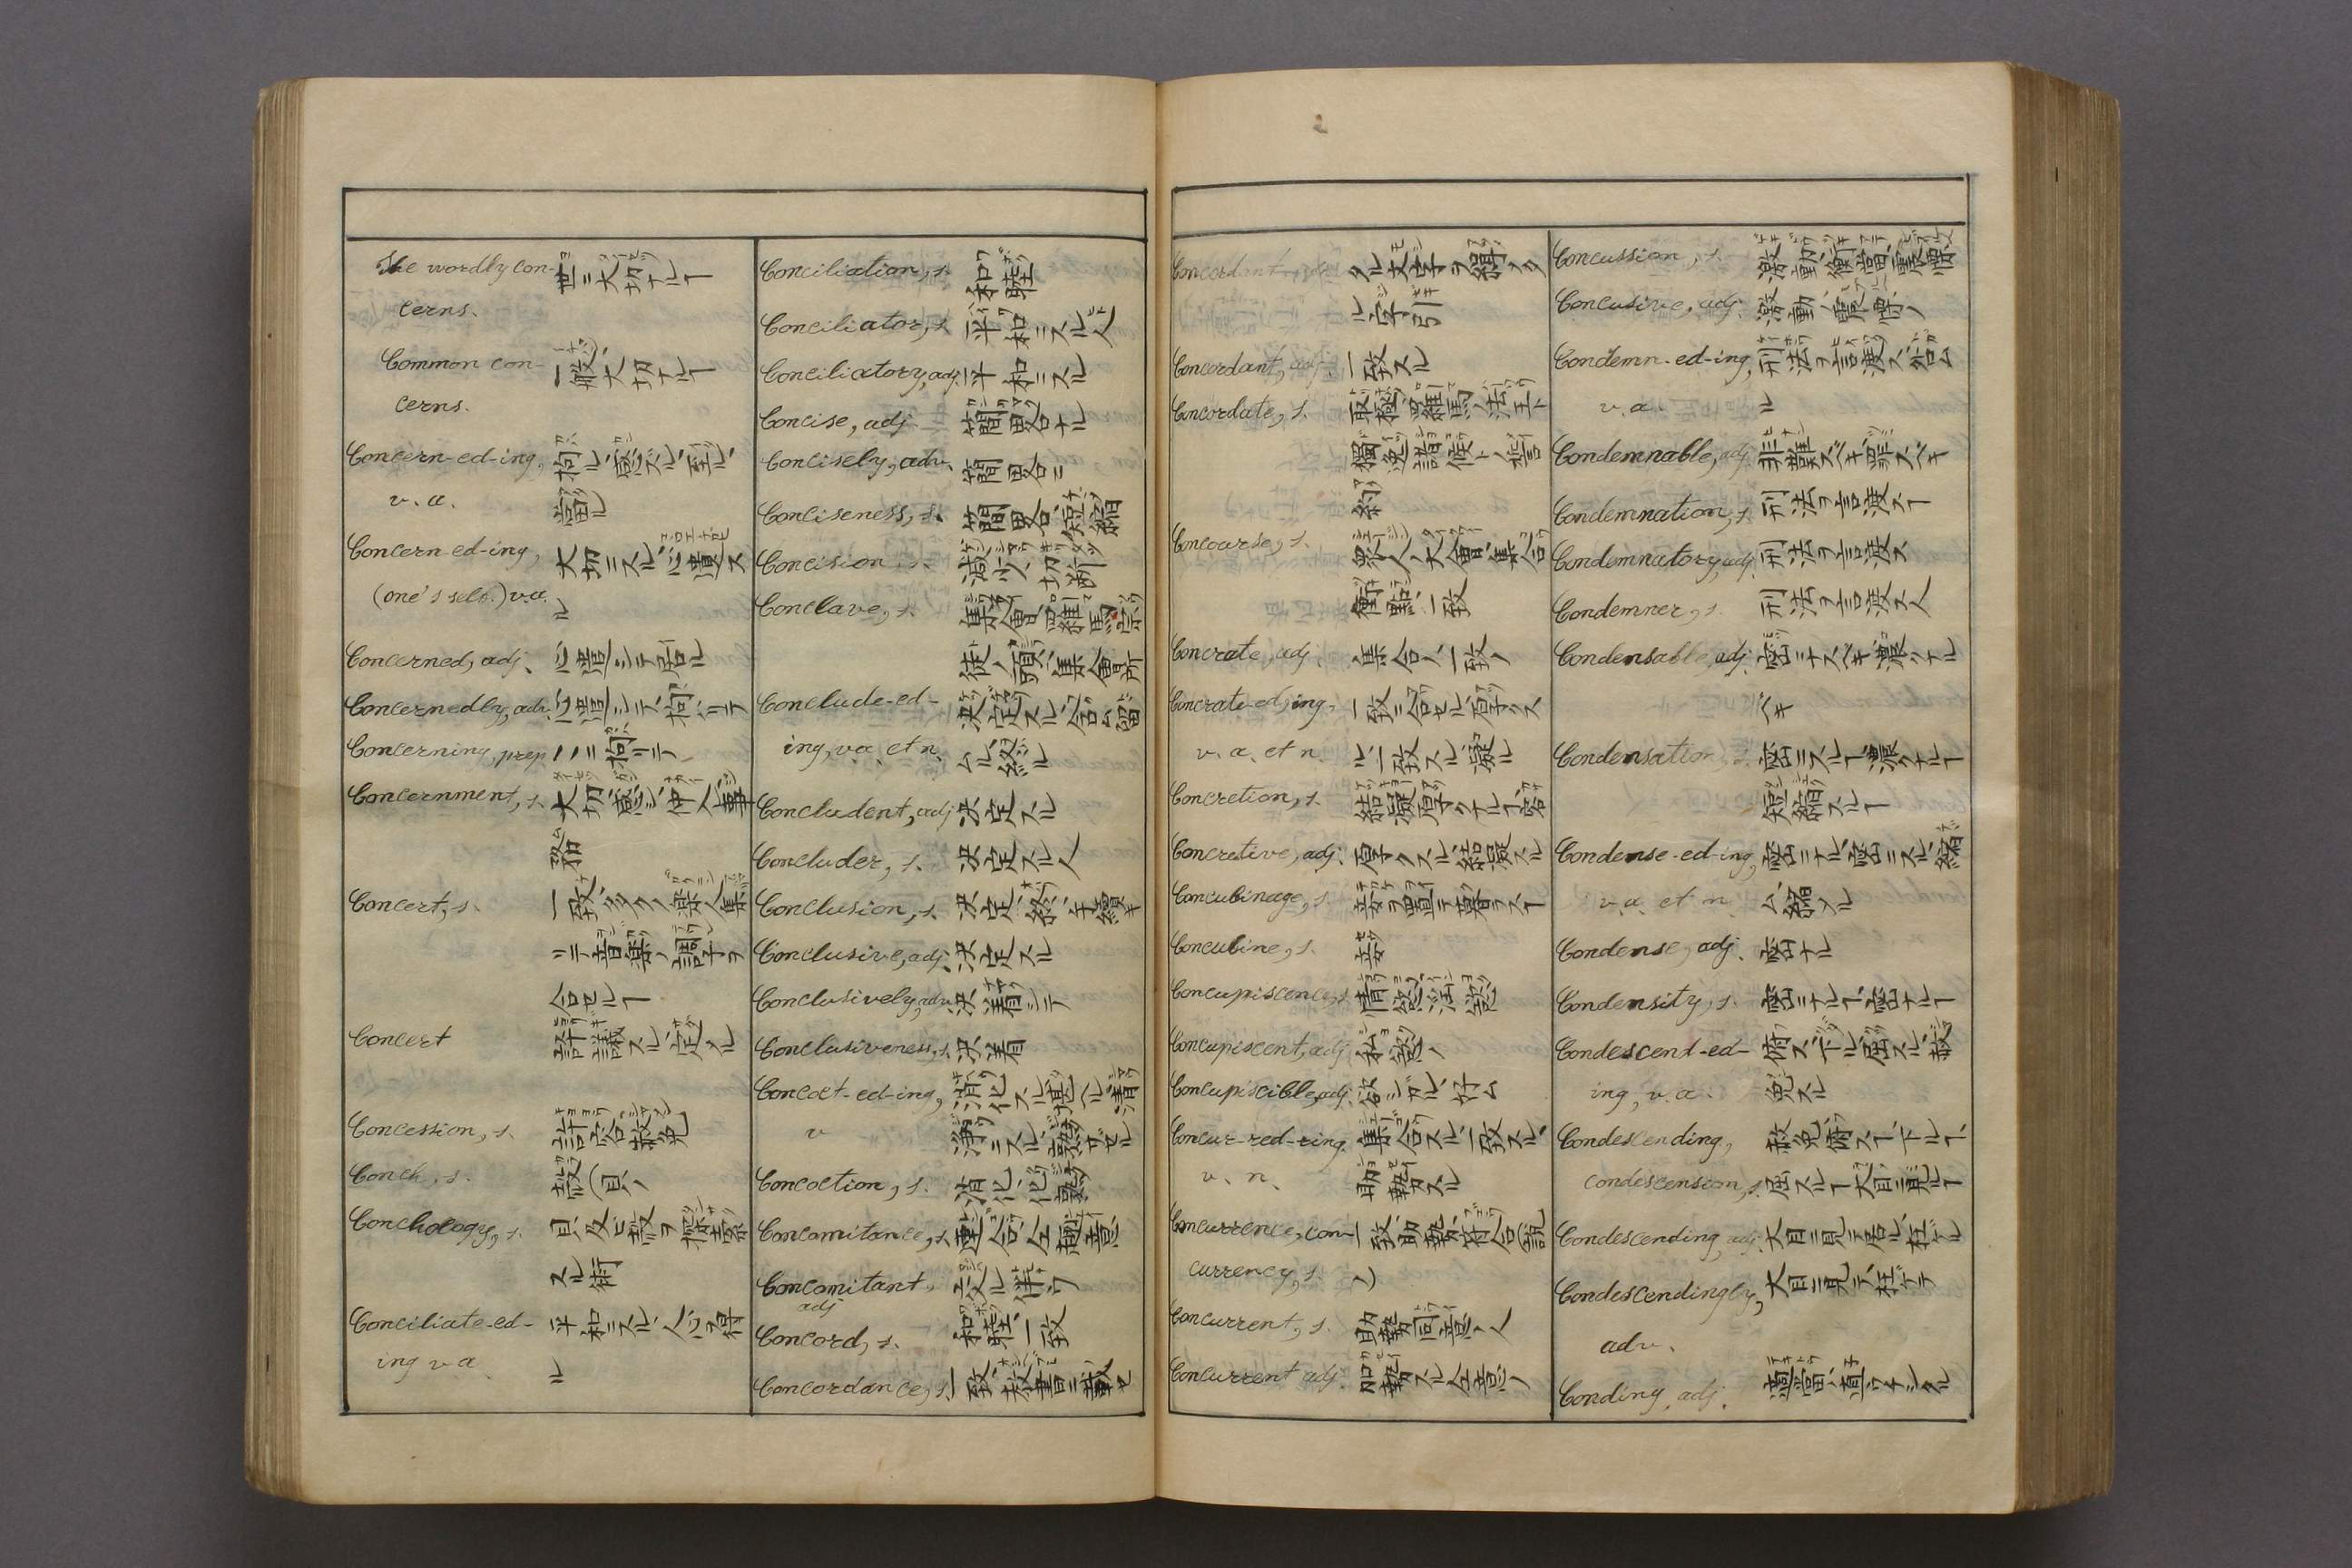 The wordly con- 世ニ大切ナルヿ
cerns.
Common con- 一般ノ大切ナルヿ
cerns.
Concern-ed-ing, 拘ル、感ズル、至ル、
v. a. 當ル
Concern-ed-ing, 大切ニスル、心遣ス
(one's self.) v.a. ル
Concerned, adj. 心遣シテ居ル
Concernedly, adv. 心遣シテ、拘ハリテ
Concerning, prep. ニ拘リテ
Concernment, s. 大切、感ジ、仲人、事
務
Concert, s. 一致、多クノ楽人集
リテ音楽ノ調子ヲ
合セルヿ
Concert 評議スル、定メル
Concession, s. 許容、赦免
Conch, s. 殻(貝ノ
Conchology, s. 貝及ビ殻ヲ
スル術
Conciliate-ed- 平和ニスル、人心ヲ得
ing v a ル
Conciliation, s. 和睦
Conciliator, s. 平和ニスル人
Conciliatory, adj. 平和ニスル
Concise, adj. 簡畧ナル
Concisely, adv. 簡畧ニ
Conciseness, s. 簡畧、短縮
Concision, s. 減少、切断
Conclave, s. 集會、羅馬宗
徒ノ頭ノ集會所
Conclude-ed- 決定スル、含ム、留
ing, v.a. et n. ムル、終ル
Concludent, adj. 決定スル
Concluder, s. 決定スル人
Conclusion, s. 決定、終、手續キ
Conclusive, adj. 決定スル
Conclusively, adv. 決着シテ
Conclusiveness, s. 決着
Concoct-ed-ing, 消化スル、堪ヘル、清
v 浄ニスル、熟サセル
Concoction, s. 消化、熟
Concomitance, s. 連合、仝意
Concomitant, 交ル、伴フ
adj
Concord, s. 和睦、一致
Concordance, s. 一致、教書ニ載セ
Concordant, タル文字ヲ繹ヌク
ル字引
Concordant, adj. 一致スル
Concordate, s. 取極、羅馬ノ法王ト
獨逸諸侯トノ誓
約
Concourse, s. 衆人ノ大會、集合
衝點、一致
Concrate, adj. 集合ノ、一致ノ
Concrate-ed, ing, 一致ニ合セル、厚クス
v. a. et n. ル、一致スル、凝ル
Concretion, s. 結凝、厚クナルヿ
Concretive, adj. 厚クスル、結凝スル
Concubinage, s. 妾ヲ置テ暮ラスヿ
Concubine, s. 妾
Concupiscence, s. 情慾、淫慾
Concupiscent, adj. 私慾ノ
Concupiscible, adj. 欲シガル、好ム
Concur-red-ring. 集合スル、一致スル、
v. n. 助勢スル
Concurrence, con- 一致、助勢、符合(説
currency, s. ノ)
Concurrent, s. 助勢、同意ノ人
Concurrent adj. 加勢スル、仝意ノ
Concussion, s. 激動、衝當、震
Concusive, adj. 激動ノ、震ノ
Condemn-ed-ing, 刑法ヲ言渡ス、咎ム
v. a. ル
Condemnable, adj. 非難スベキ、罪スベキ
Condemnation, s. 刑法ヲ言渡スヿ
Condemnatory, adj. 刑法ヲ言渡ス
Condemner, s. 刑法ヲ言渡ス人
Condensable, adj. 密ニナスベキ、濃クナル
ベキ
Condensation, s. 密ニスルヿ、濃クナルヿ
短縮スルヿ
Condense-ed-ing, 密ニナル、密ニスル、縮
v. a. et n. ム、縮メル
Condense, adj. 密ナル
Condensity, s. 密ニナルヿ、密ナルヿ
Condescend-ed- 俯ス、下ル、屈スル、赦
ing, v. a. 免スル
Condescending, 赦免、俯スヿ、下ルヿ、
condescension, s. 屈スルヿ、大目ニ見ルヿ
Condescending, adj. 大目ニ見テ居ル、枉ゲル
Condescendingly, 大目ニ見テ、枉ゲテ
adv.
Conding, adj. 適當ノ